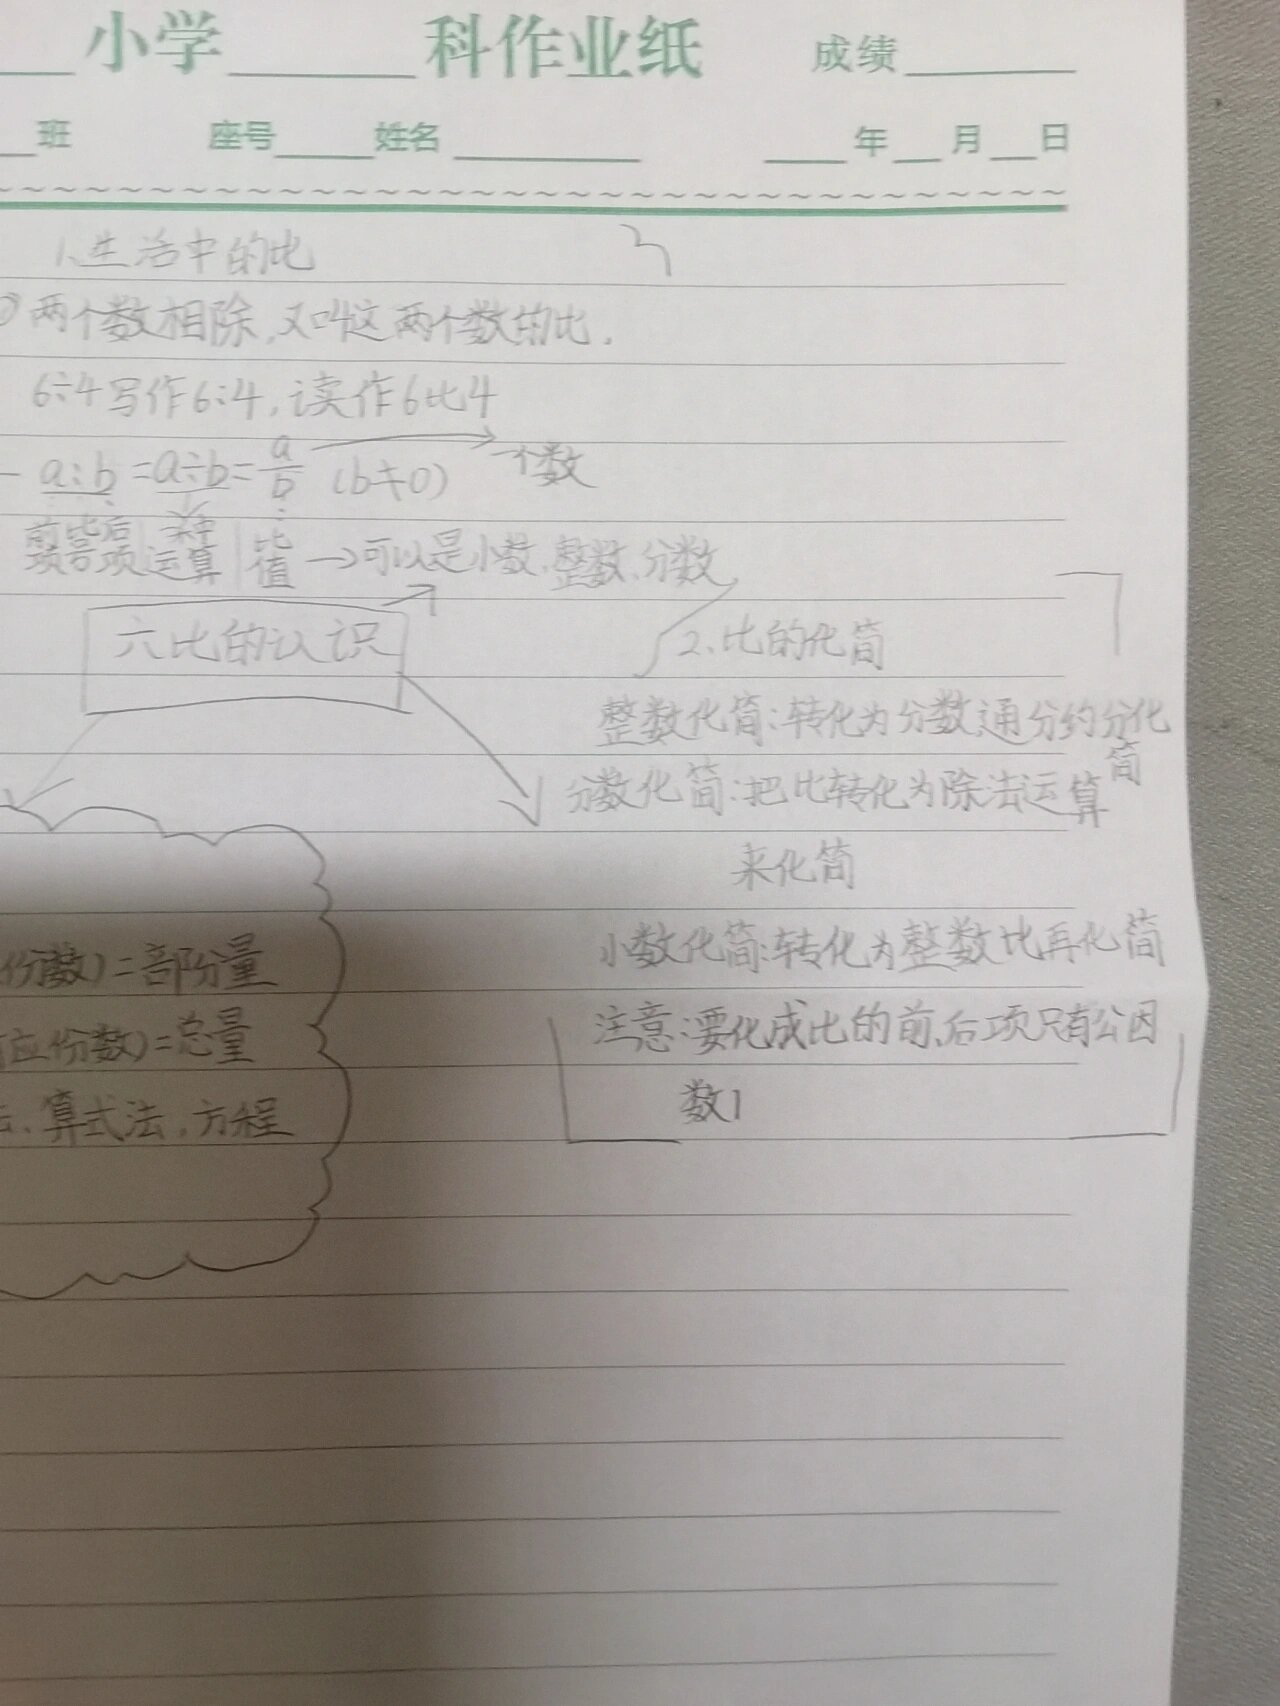 小学 科作业纸 成绩
班 座号 姓名 年 月 日
1、生活中的比
两个数相除,又叫这两个数的比.
6÷4写作6:4,读作6比4
a:b=a÷b=a/b (b≠0) 一个数
前项 比号 后项 | 运算 | 比值 →可以是小数、整数、分数
六比的认识
2、比的化简
整数化简:转化为分数通分约分化简
分数化简:把比转化为除法运算
来化简
小数化简:转化为整数比再化简
注意:要化成比的前、后项只有公因
数1
份数)=部份量
应份数)=总量
法、算式法,方程